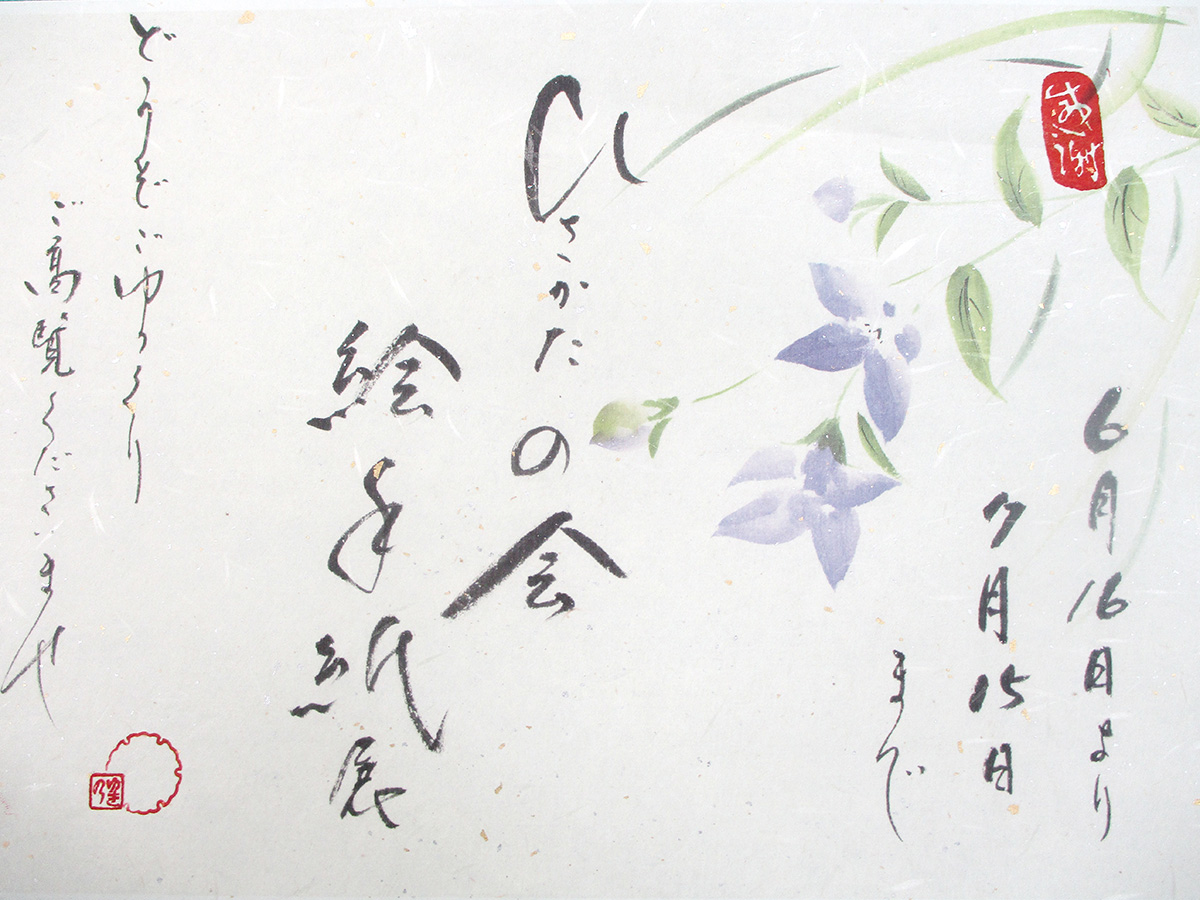 感謝
6月16日より
7月15日
まで
ひさかたの会
絵手紙展
どうぞごゆっくり
ご高覧くださいませ